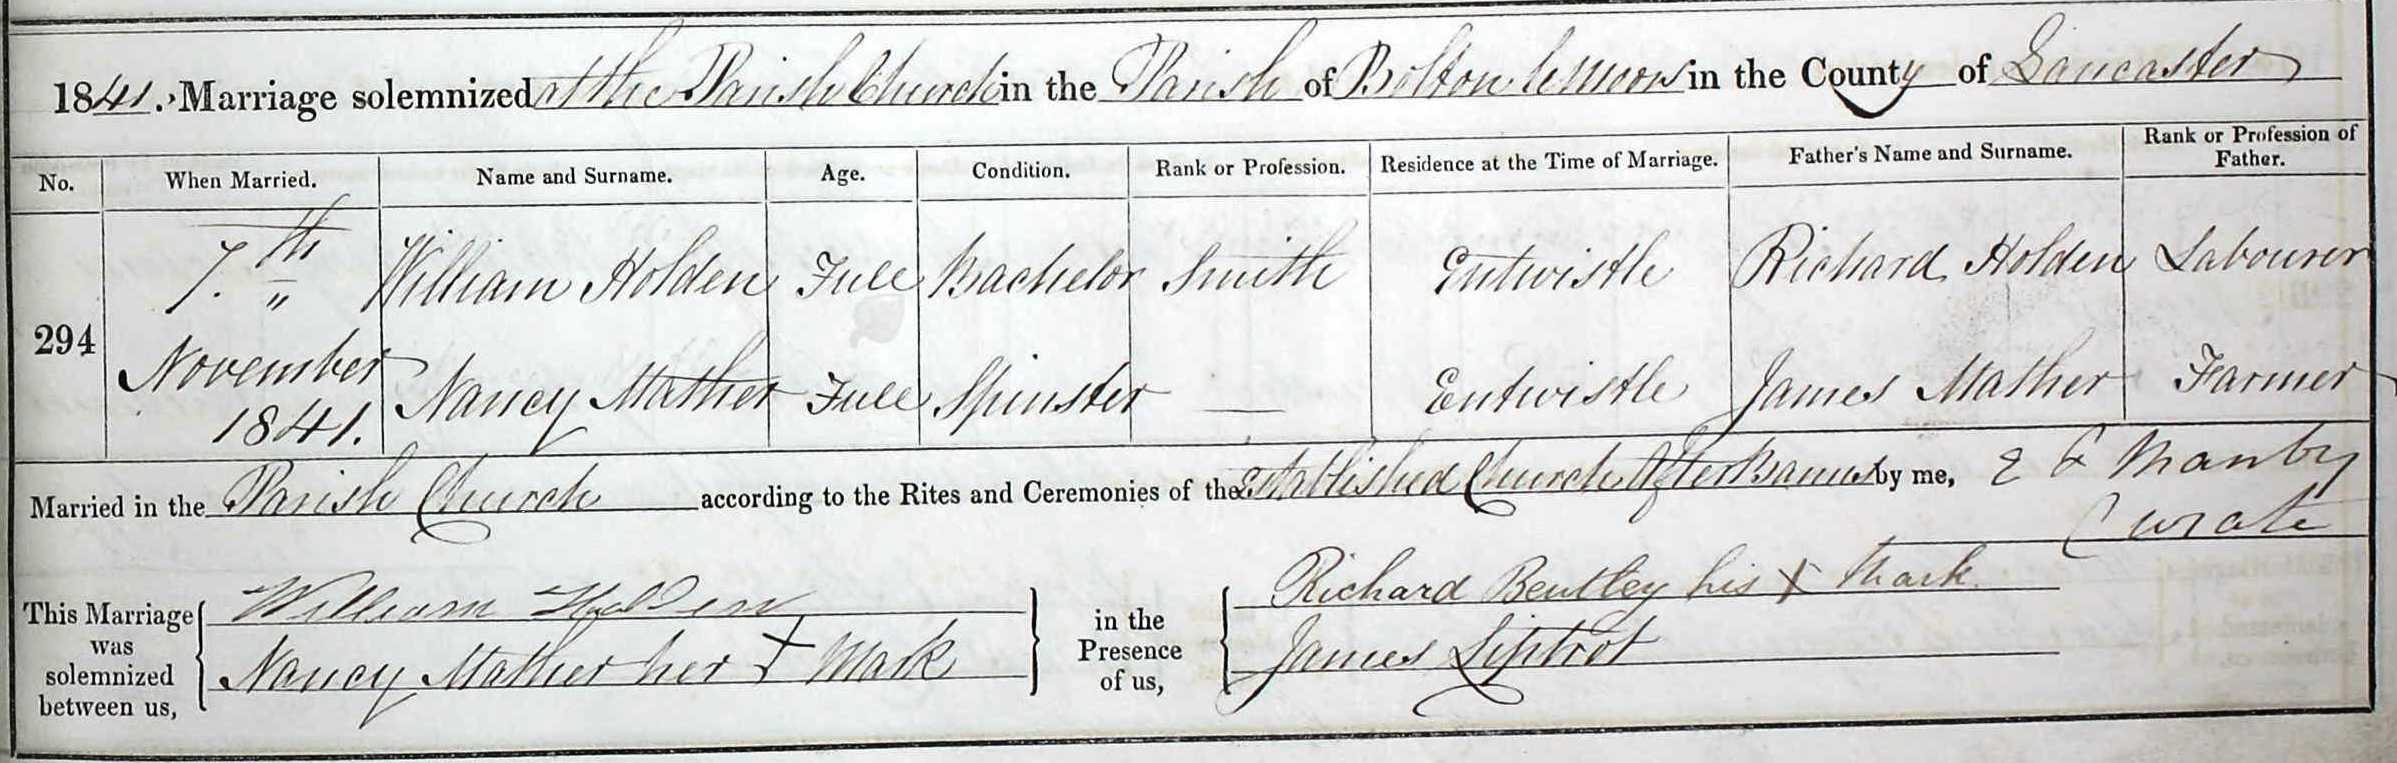 1841. Marriage solemnized at the Parish Church in the Parish of Bolton le Moors in the County of Lancaster
No. When Married. Name and Surname. Age. Condition. Rank or Profession. Residence at the Time of Marriage. Father's Name and Surname. Rank or Profession of Father.
294 7.th November 1841.
William Holden Full Bachelor Smith Entwistle Richard Holden Labourer
Nancy Mather Full Spinster — Entwistle James Mather Farmer
Married in the Parish Church according to the Rites and Ceremonies of the Established Church After Banns by me, E G Manby
Curate
This Marriage was solemnized between us,
William Holden
Nancy Mather her X Mark
in the Presence of us,
Richard Bentley his X Mark
James Liptrot